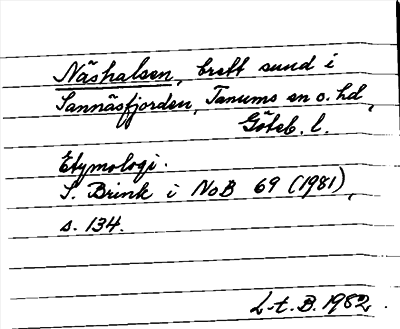 Näshalsen, brett sund i
Sannäsfjorden, Tanums en o. hd,
Göteb. l.
Etymologi:
S. Brink i NoB 69 (1981),
s. 134.
L-t. B. 1982